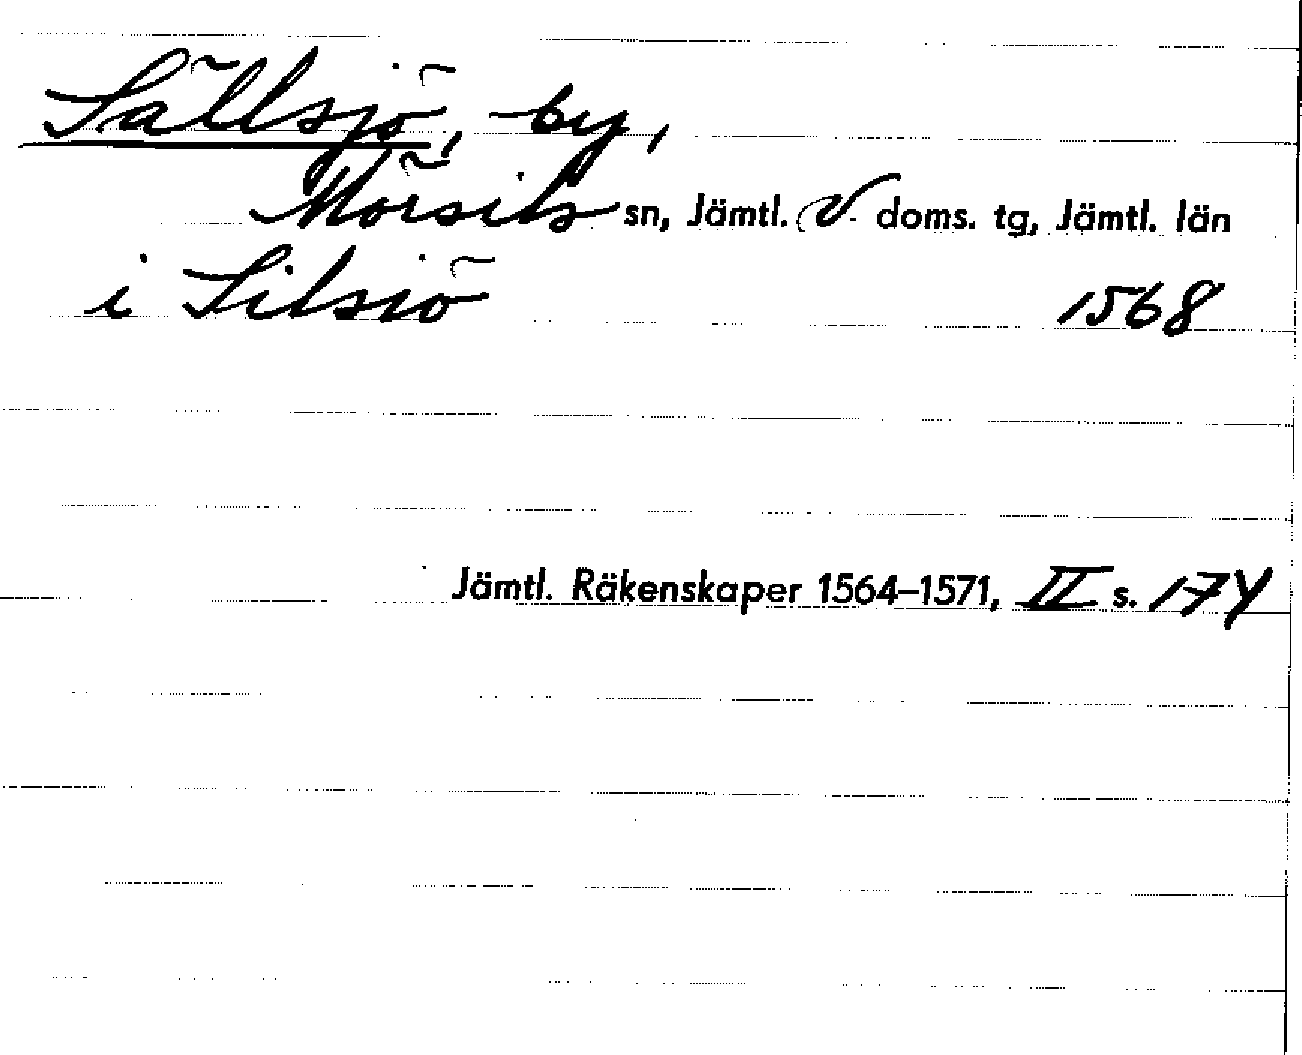 Sällsjö, by,
Mörsils sn, Jämtl. V. doms. tg, Jämtl. län
i Silsiö 1568
Jämtl. Räkenskaper 1564–1571, II s. 174